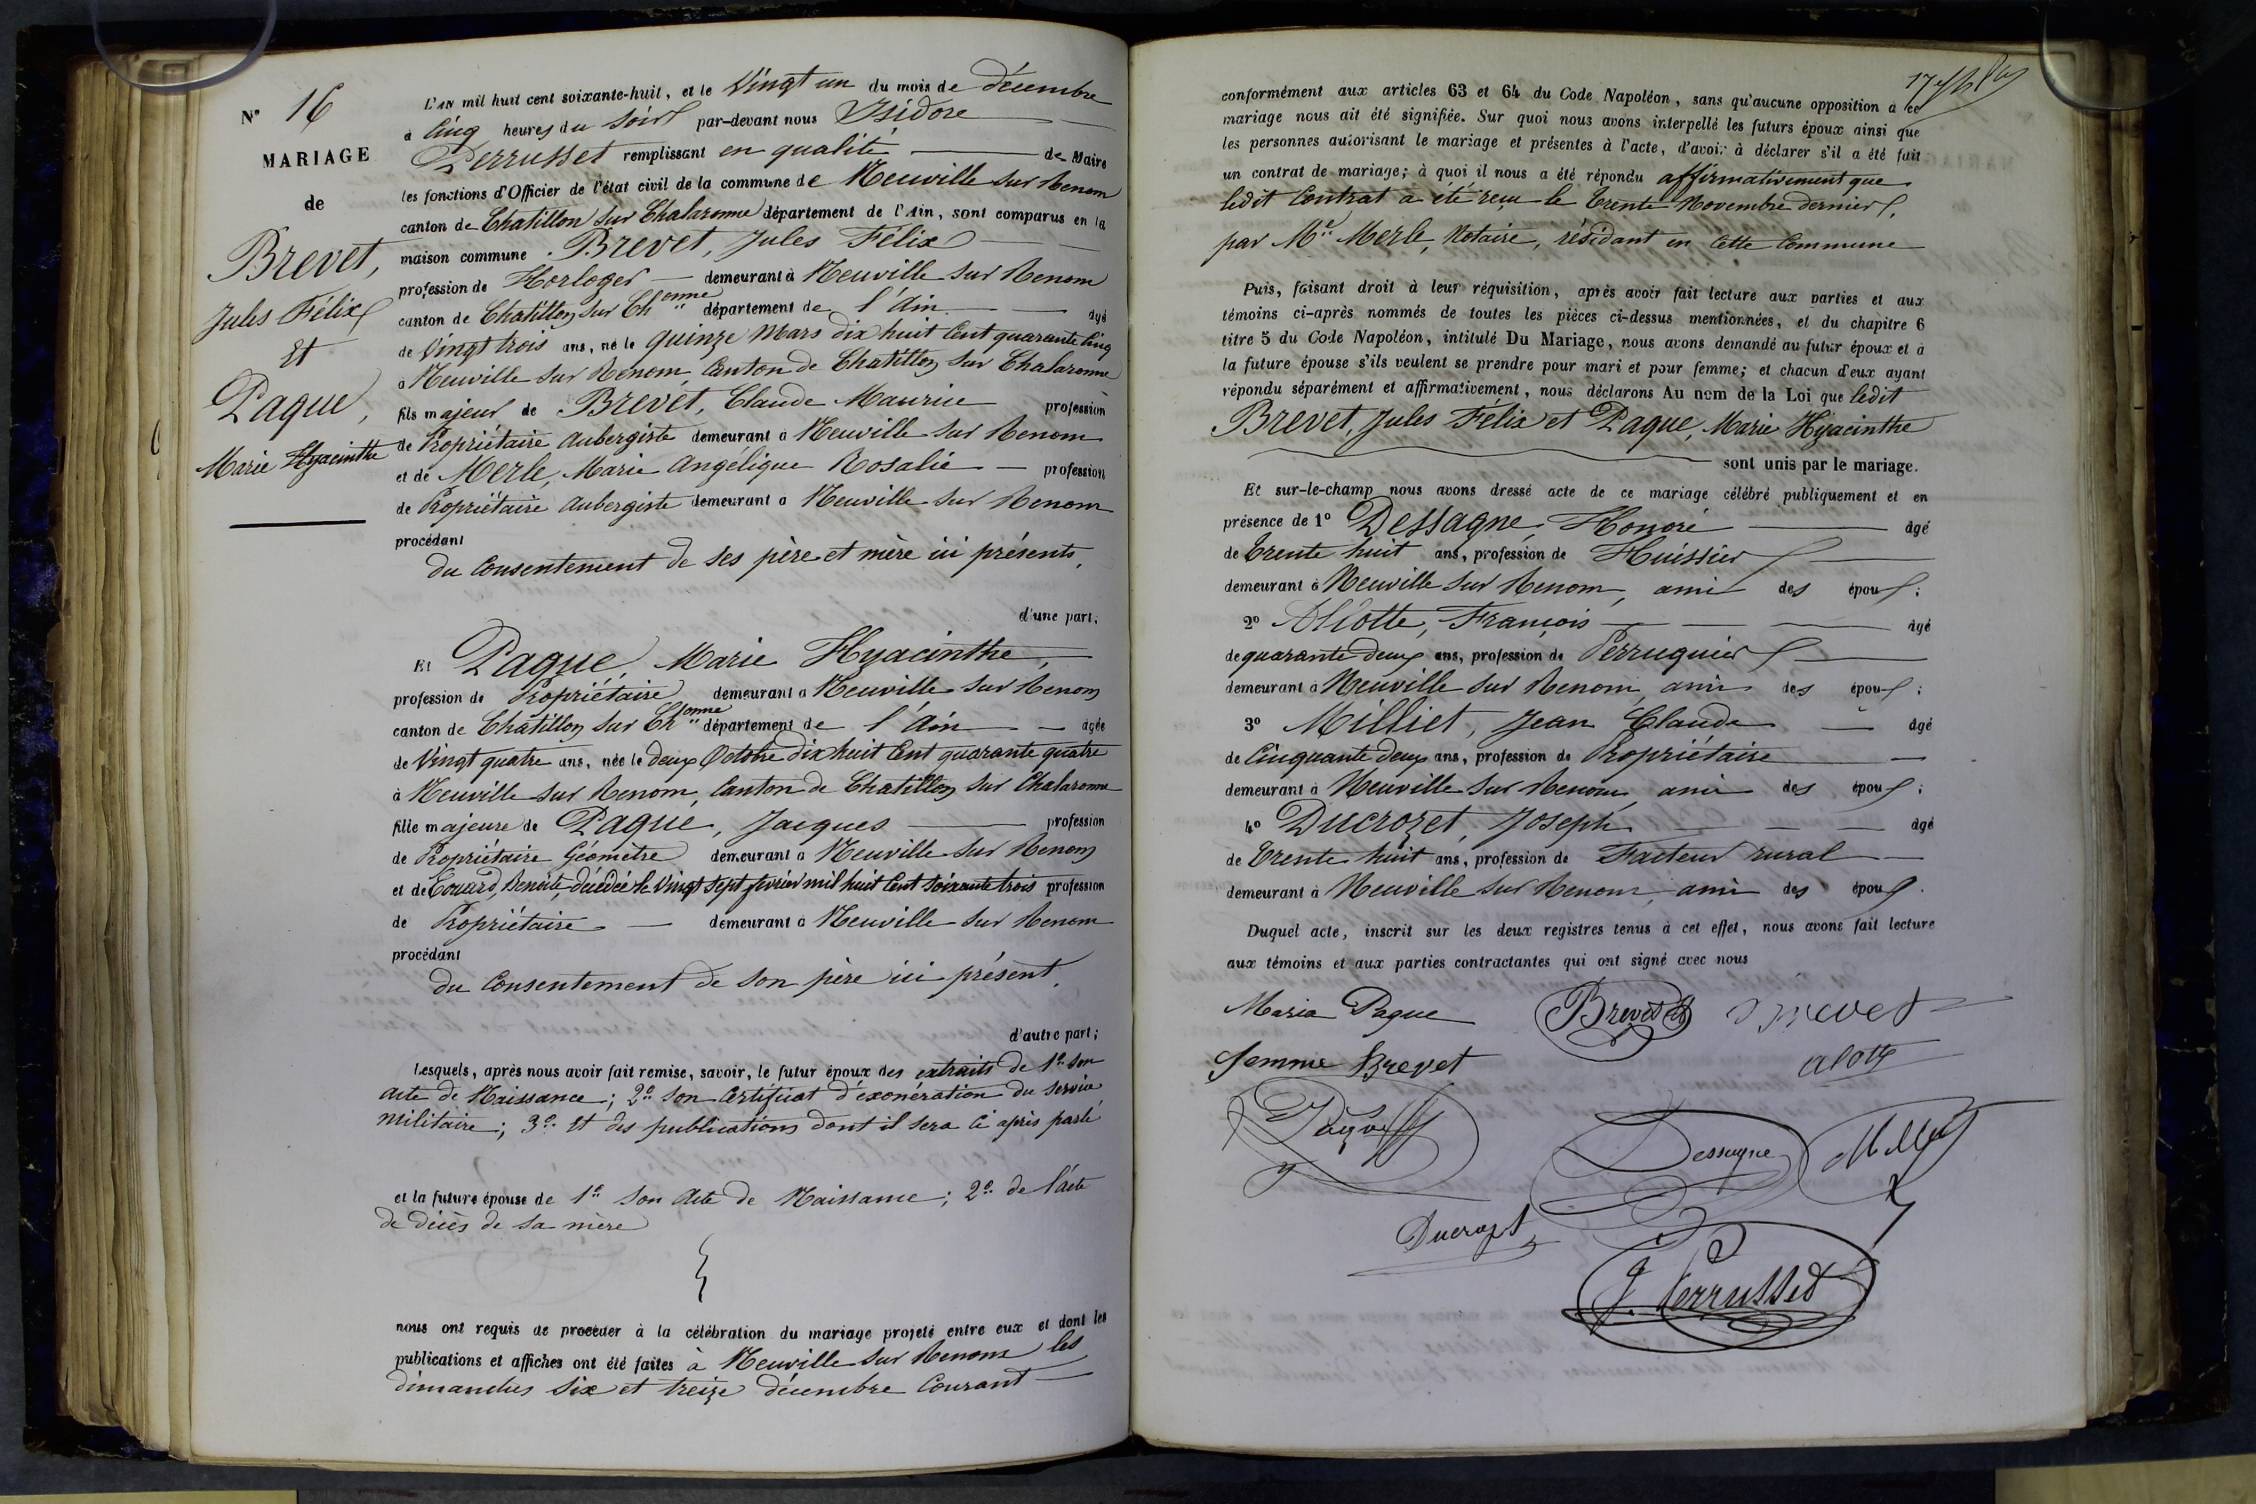 N° 16
MARIAGE
de
Brevet,
Jules Félix
Et
Paque,
Marie Hyacinthe
L'AN mil huit cent soixante-huit, et le Vingt un du mois de décembre
à Cinq heures du soir par-devant nous Isidore
Perrusset remplissant en qualité de Maire
les fonctions d'Officier de l'état civil de la commune de Neuville sur Renom
canton de Chatillon sur Chalaronne département de l'Ain, sont comparus en la
maison commune Brevet, Jules Félix
profession de Horloger demeurant à Neuville sur Renom
canton de Chatillon sur Chonne département de l'Ain âgé
de Vingt trois ans, né le quinze Mars dix huit Cent quarante Cinq
à Neuville sur Renom, Canton de Chatillon sur Chalaronne
fils majeur de Brevet, Claude Maurice profession
de Propriétaire Aubergiste demeurant à Neuville sur Renom
et de Merle, Marie Angélique Rosalie profession
de Propriétaire Aubergiste demeurant à Neuville sur Renom
procédant
du Consentement de ses père et mère ici présents,
d'une part;
Et Paque, Marie Hyacinthe,
profession de Propriétaire demeurant à Neuville sur Renom
canton de Chatillon sur Chonne département de l'Ain âgée
de Vingt quatre ans, née le deux Octobre dix huit Cent quarante quatre
à Neuville sur Renom, Canton de Chatillon sur Chalaronne
fille majeure de Paque, Jacques profession
de Propriétaire Géomètre demeurant à Neuville sur Renom
et de Benoite, décédée le Vingt sept février mil huit Cent soixante trois profession
de Propriétaire demeurant à Neuville sur Renom
procédant
du Consentement de son père ici présent,
d'autre part;
Lesquels, après nous avoir fait remise, savoir, le futur époux des extraits de 1° son
acte de Naissance; 2° son Certificat d'exonération du service
militaire; 3° Et des publications dont il sera ci après parlé
et la future épouse de 1° son Acte de Naissance; 2° de l'acte
de décès de sa mère
nous ont requis de procéder à la célébration du mariage projeté entre eux et dont les
publications et affiches ont été faites à Neuville sur Renom les
dimanches six et treize décembre Courant
17
conformément aux articles 63 et 64 du Code Napoléon, sans qu'aucune opposition à ce
mariage nous ait été signifiée. Sur quoi nous avons interpellé les futurs époux ainsi que
les personnes autorisant le mariage et présentes à l'acte, d'avoir à déclarer s'il a été fait
un contrat de mariage; à quoi il nous a été répondu affirmativement que
ledit Contrat a été reçu le trente Novembre dernier,
par Me Merle, Notaire, résidant en Cette Commune
Puis, faisant droit à leur réquisition, après avoir fait lecture aux parties et aux
témoins ci-après nommés de toutes les pièces ci-dessus mentionnées, et du chapitre 6
titre 5 du Code Napoléon, intitulé Du Mariage, nous avons demandé au futur époux et à
la future épouse s'ils veulent se prendre pour mari et pour femme; et chacun d'eux ayant
répondu séparément et affirmativement, nous déclarons Au nom de la Loi que ledit
Brevet, Jules Félix et Paque, Marie Hyacinthe
sont unis par le mariage.
Et sur-le-champ nous avons dressé acte de ce mariage célébré publiquement et en
présence de 1° Dessagne, Honoré âgé
de trente huit ans, profession de Huissier
demeurant à Neuville sur Renom, ami des époux;
2° Allotte, François âgé
de quarante deux ans, profession de Perruquier
demeurant à Neuville sur Renom, ami des époux;
3° Milliet, Jean Claude âgé
de Cinquante deux ans, profession de Propriétaire
demeurant à Neuville sur Renom, ami des époux;
4° Ducrozet, Joseph âgé
de trente huit ans, profession de Facteur rural
demeurant à Neuville sur Renom, ami des époux.
Duquel acte, inscrit sur les deux registres tenus à cet effet, nous avons fait lecture
aux témoins et aux parties contractantes qui ont signé avec nous
Maria Paque Brevet Brevet
femme Brevet alotte
Paque Dessagne Milliet
Ducrozet
J. Perrusset